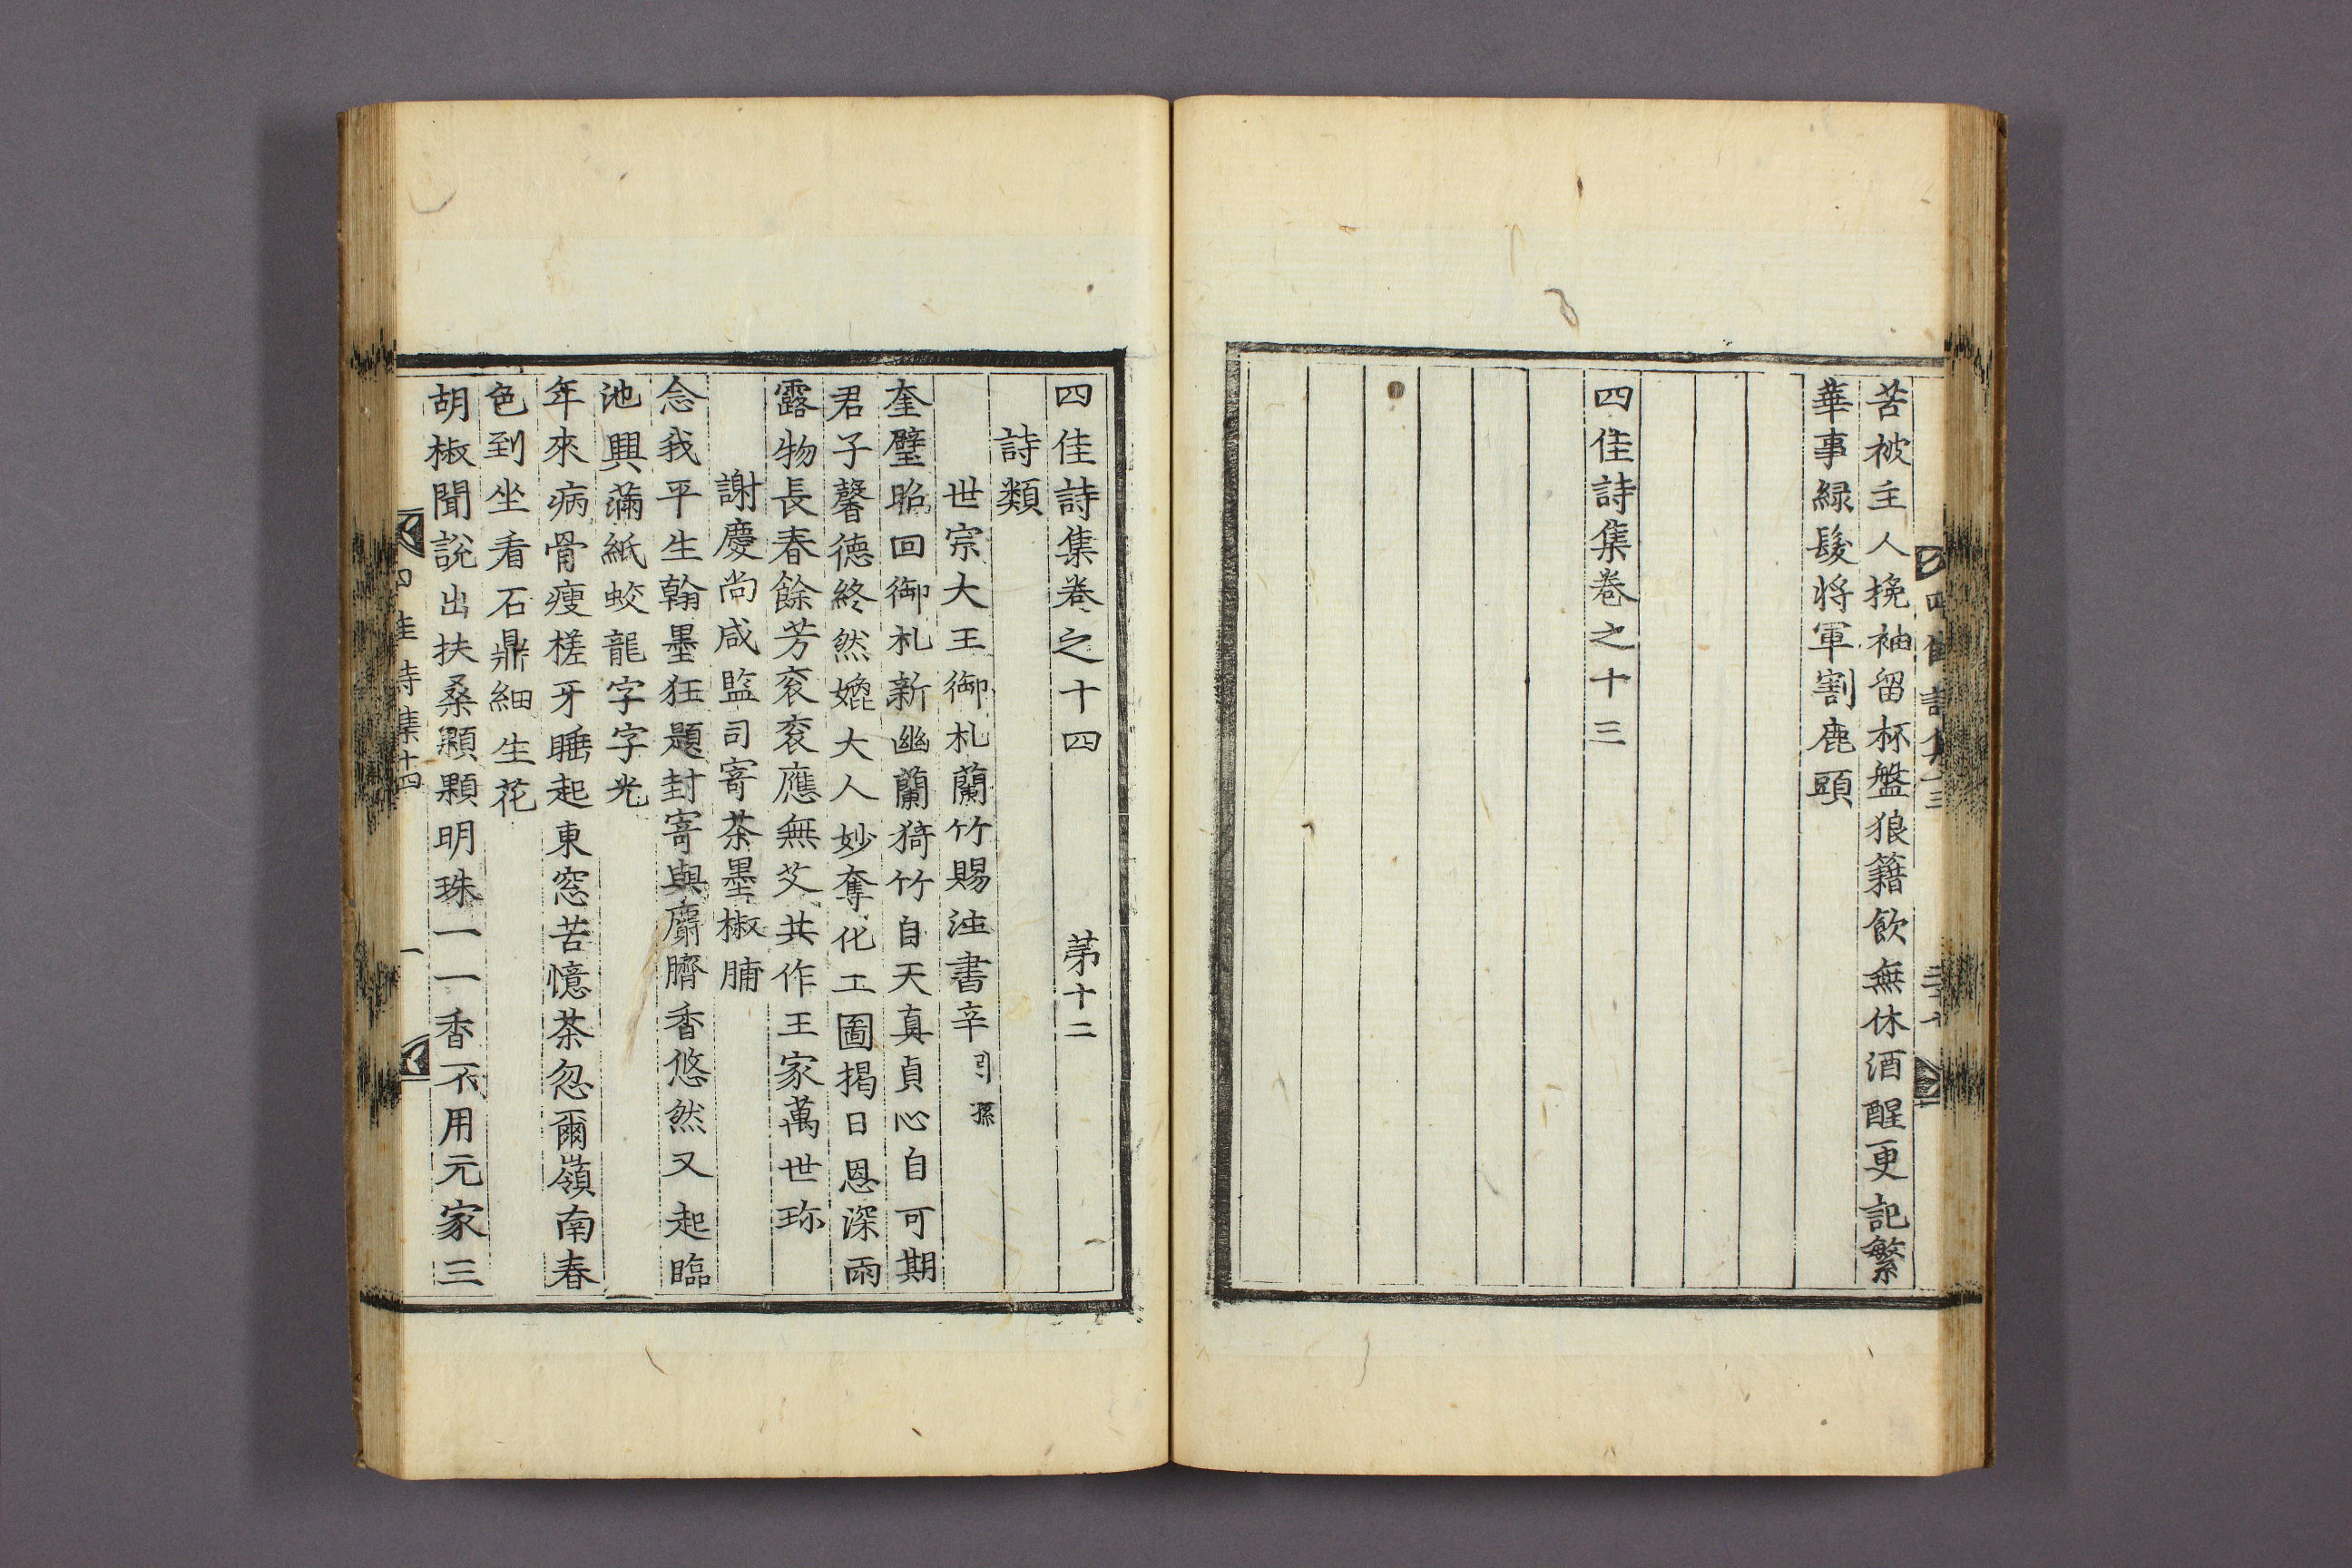 苦被主人挽袖留杯盤狼籍飮無休酒醒更記繁
華事緑髮將軍割鹿頭
四佳詩集卷之十三
四佳詩集卷之十四 第十二
詩類
世宗大王御札蘭竹賜注書辛引孫
奎璧昭回御札新幽蘭猗竹自天真貞心自可期
君子馨德終然媲大人妙奪化工圖揭日恩深雨
露物長春餘芳衮衮應無艾共作王家萬世珎
謝慶尚咸監司寄茶墨椒脯
念我平生翰墨狂題封寄與麝臍香悠然又起臨
池興滿紙蛟龍字字光
年來病骨瘦槎牙睡起東窓苦憶茶忽爾嶺南春
色到坐看石鼎細生花
胡椒聞說出扶桑顆顆明珠一一香不用元家三
四佳詩集十四 一